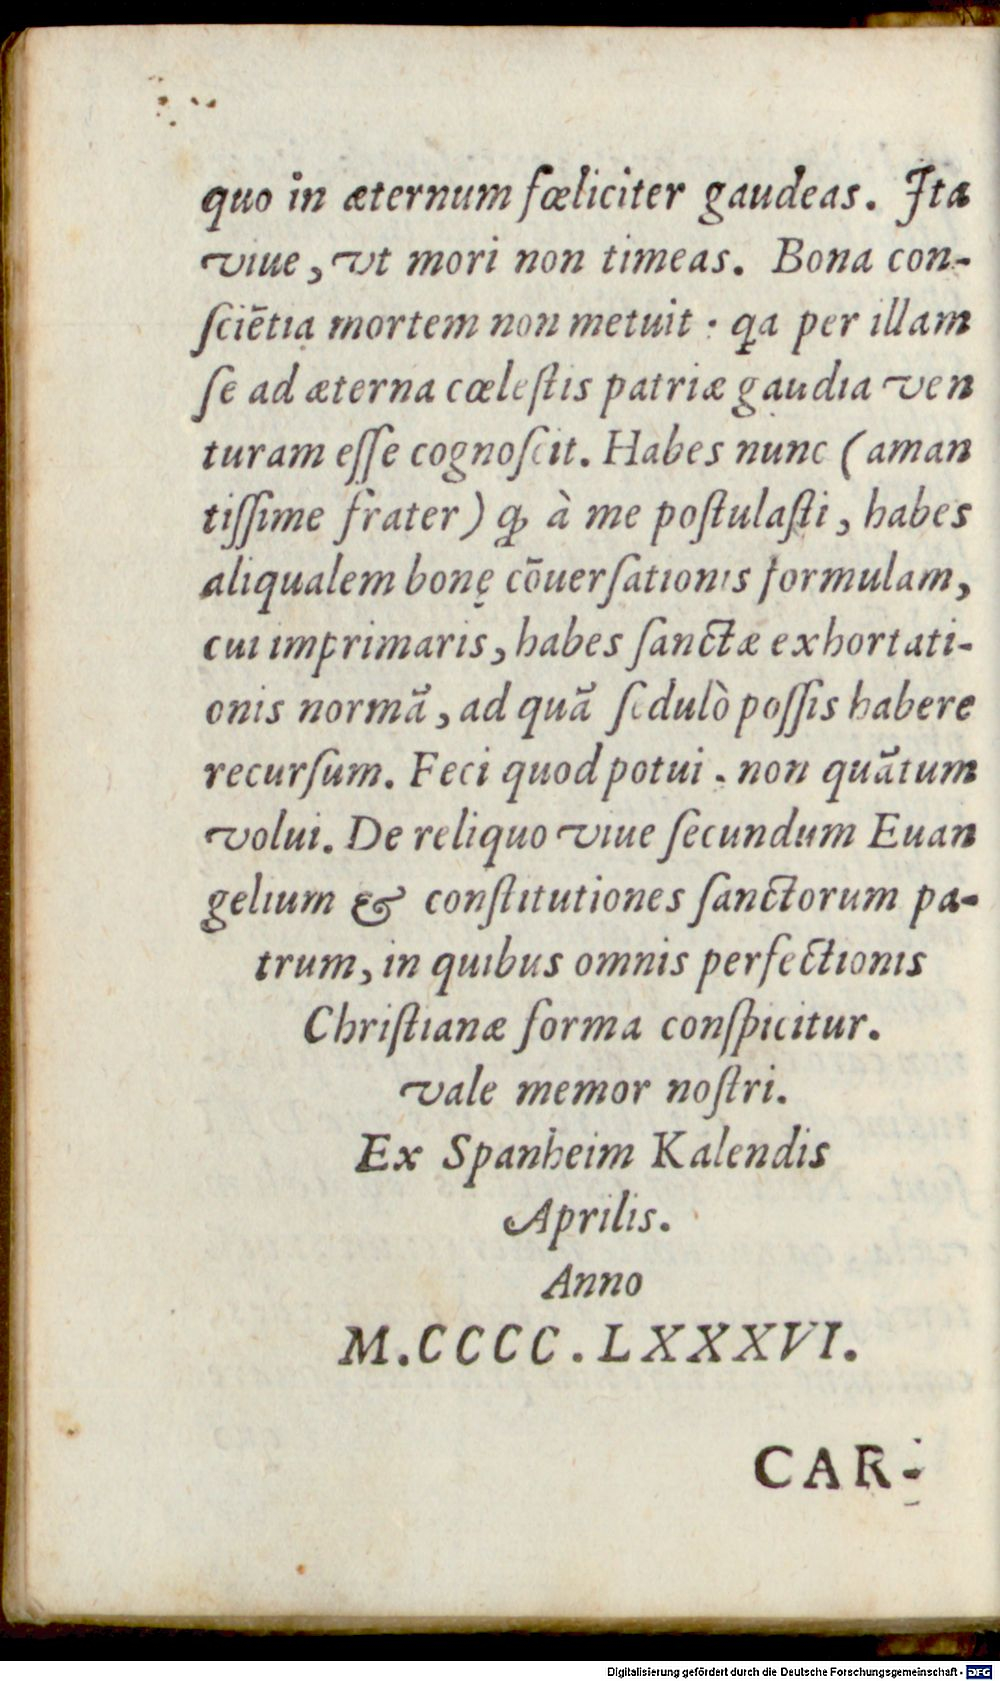 quo in æternum fœliciter gaudeas. Ita
viue, vt mori non timeas. Bona con-
ſciẽtia mortem non metuit : ꝗa per illam
ſe ad æterna cœleſtis patriæ gaudia ven
turam eſſe cognoſcit. Habes nunc (aman
tiſſime frater) ꝙ à me poſtulaſti, habes
aliqualem bonę cõuerſationis formulam,
cui imprimaris, habes ſanctæ exhortati-
onis normã, ad quã ſedulò poſſis habere
recurſum. Feci quod potui. non quãtum
volui. De reliquo viue ſecundum Euan
gelium & conſtitutiones ſanctorum pa-
trum, in quibus omnis perfectionis
Chriſtianæ forma conſpicitur.
vale memor noſtri.
Ex Spanheim Kalendis
Aprilis.
Anno
M.CCCC.LXXXVI.
CAR-
Digitalisierung gefördert durch die Deutsche Forschungsgemeinschaft - DFG